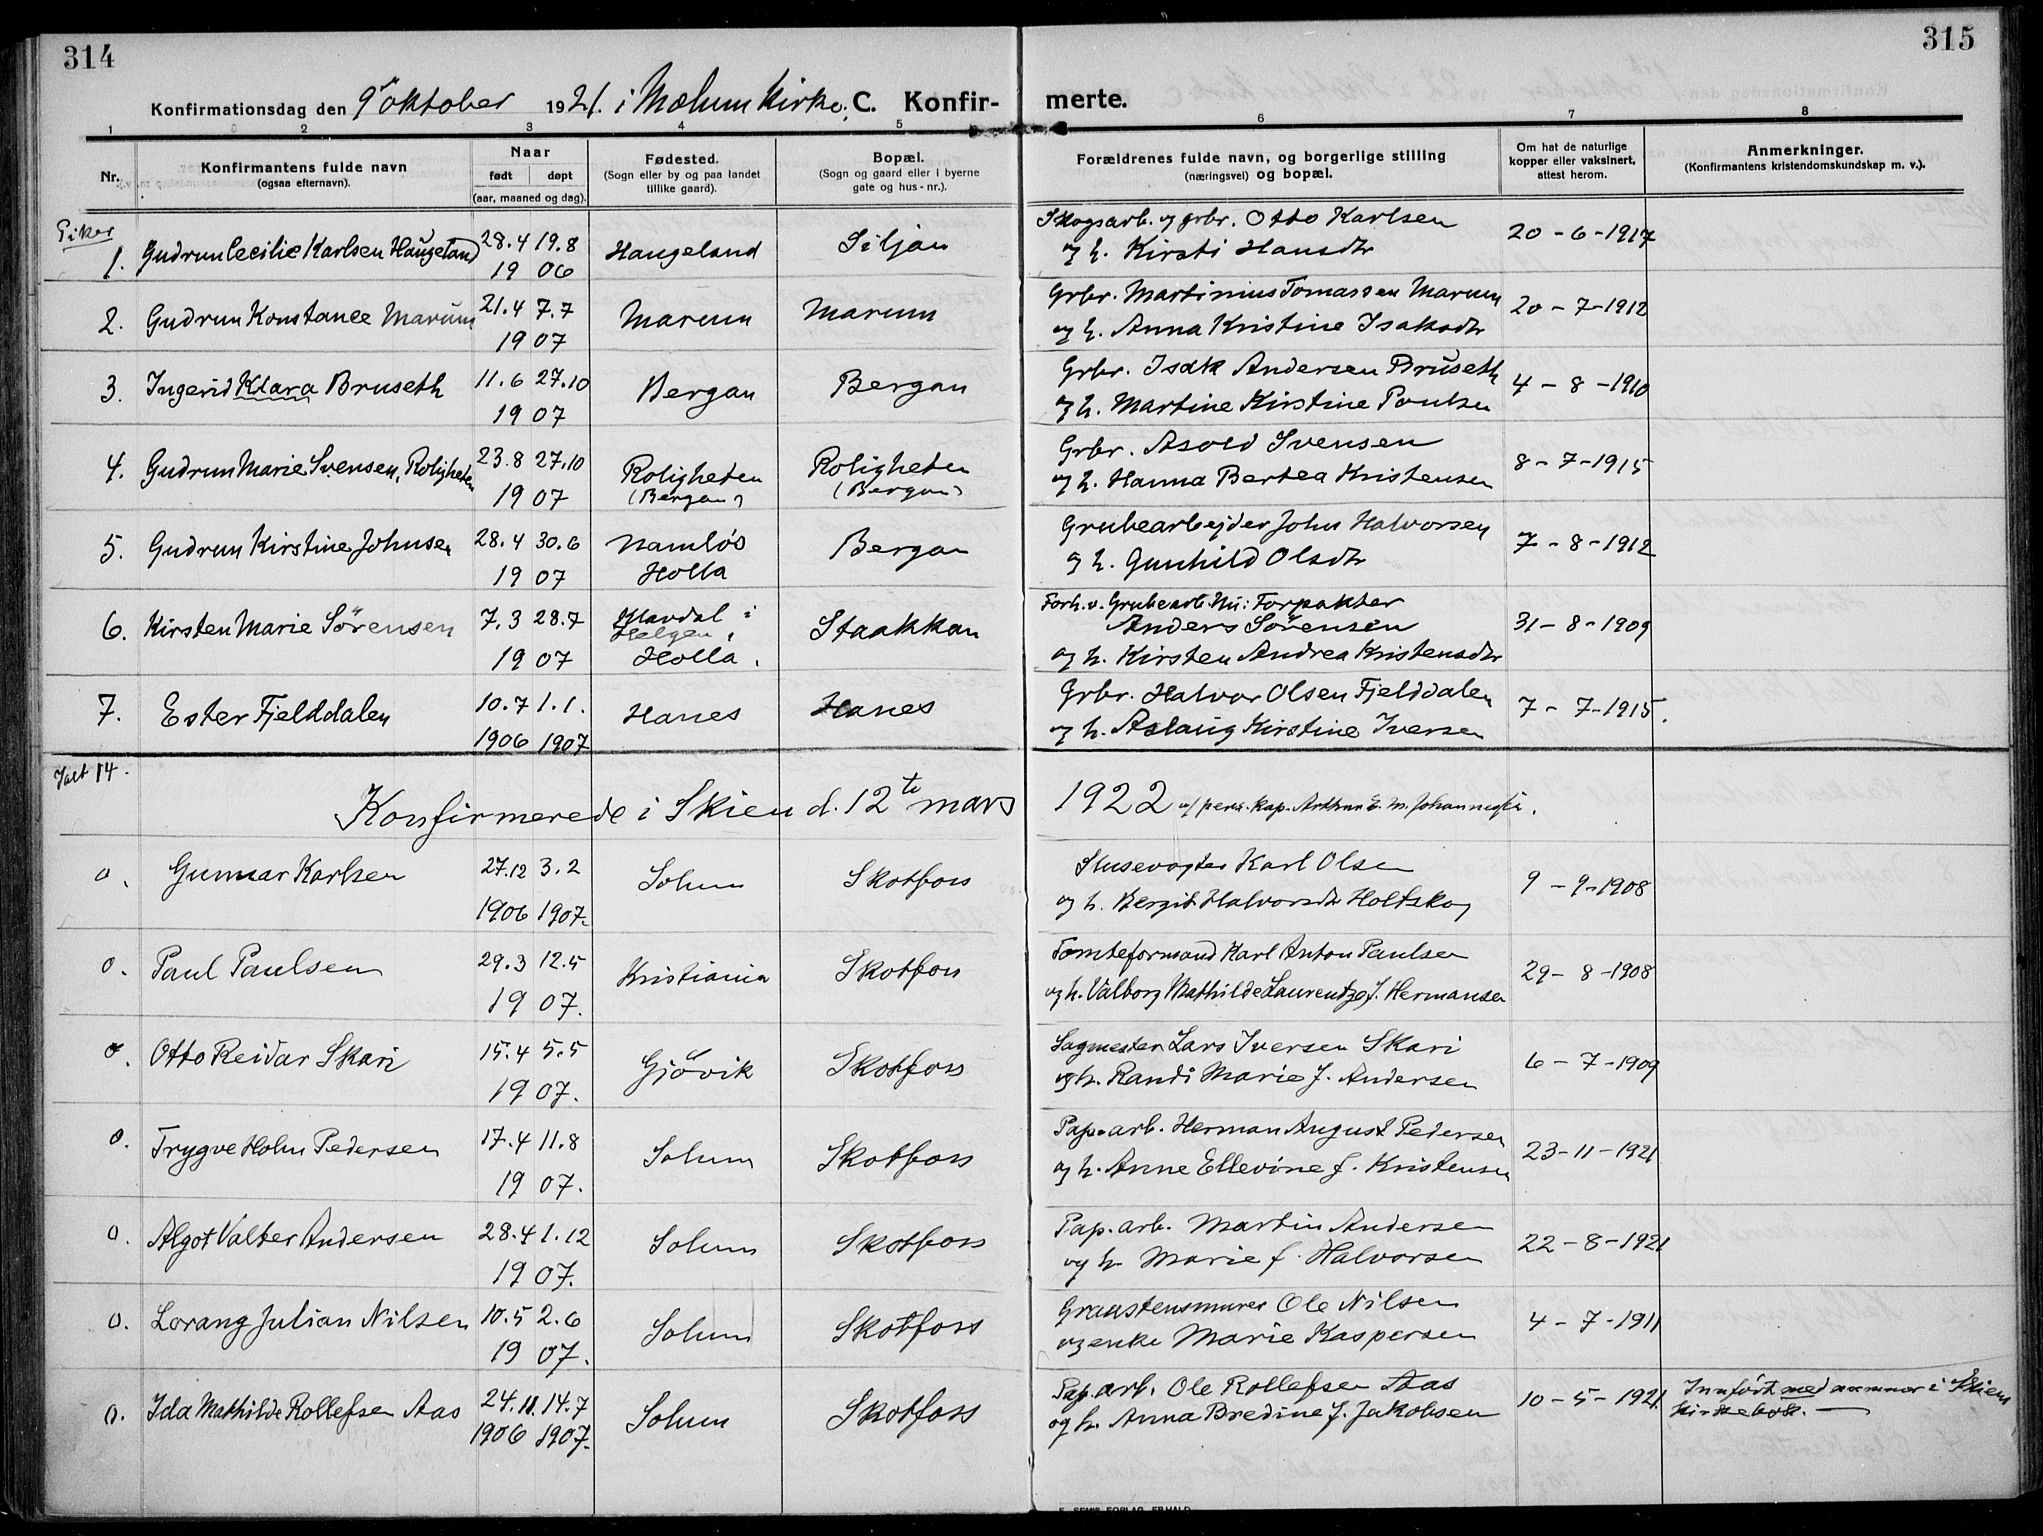 314
315
Konfirmationsdag den 9de oktober 1921. i Mælum Kirke. C. Konfir- merte.
1 2 3 4 5 6 7 8
Nr. Konfirmantens fulde navn (ogsaa efternavn). Naar født døpt (aar, maaned og dag). Fødested. (Sogn eller by og paa landet tillike gaard). Bopæl. (Sogn og gaard eller i byerne gate og hus-nr.). Forældrenes fulde navn, og borgerlige stilling (næringsvei) og bopæl. Om hat de naturlige kopper eller vaksinert, attest herom. Anmerkninger. (Konfirmantens kristendomskundskap m. v.).
Piker
1. Gudrun Cecilie Karlsen Haugeland 28.4 19.8 Haugeland Siljan Skogsarb. og grbr. Otto Karlsen 20-6-1917
19 06 og h. Kirsti Hansdtr
2. Gudrun Konstance Marum 21.4 7.7 Marum Marum Grbr. Martinius Tomassen Marum 20-7-1912
19 07 og h. Anna Kristine Isaksdtr
3. Ingerid Klara Bruseth 11.6 27.10 Bergan Bergan Grbr. Isak Andersen Bruseth 4-8-1910
19 07 og h. Martine Kirstine Poulsen
4. Gudrun Marie Svensen, Roligheten 23.8 27.10 Roligheten Roligheten Grbr. Asold Svensen 8-7-1915
19 07 (Bergan) (Bergan) og h. Hanna Bertea Kristensen
5. Gudrun Kirstine Johnsen 28.4 30.6 Namløs Bergan Grubearbejder John Halvorsen 7-8-1912
19 07 Holla og h. Gunhild Olsdtr
6. Kirsten Marie Sørensen 7.3 28.7 Klavdal i Staakkan Forh. v. Grubearb. Nu: Forpakter 31-8-1909
Helgen, Anders Sørensen
19 07 Holla. og h. Kirsten Andrea Kristensdtr
7. Ester Fjelddalen 10.7 1.1. Hanes Hanes Grbr. Halvor Olsen Fjelddalen 7-7-1915.
1906 1907 og h. Aslaug Kirstine Iversen
Ialt 14.
Konfirmerede i Skien d. 12te mars 1922 v/ pers. kap. Arthur E. M. Johannesen.
0. Gunnar Karlsen 27.12 3.2 Solum Skotfoss Slusevogter Karl Olsen 9-9-1908
1906 1907. og h. Bergit Halvorsdtr Holtskog
0. Paul Paulsen 29.3 12.5 Kristiania Skotfoss Tomteformand Karl Anton Paulsen 29-8-1908
19 07. og h. Valborg Mathilde f. Hermansen
0. Otto Reidar Skari 15.4 5.5 Gjøvik Skotfoss Sagmester Lars Iversen Skari 6-7-1909
19 07. og h. Randi Marie f. Andersen
0. Trygve Holm Pedersen 17.4 11.8 Solum Skotfoss Pap.arb. Herman August Pedersen 23-11-1921
19 07. og h. Anne Ellevine f. Kristensen
0. Algot Valter Andersen 28.4 1.12 Solum Skotfoss Pap.arb. Martin Andersen 22-8-1921
19 07. og h. Marie f. Halvorsen
0. Lorang Julian Nilsen 10.5 2.6 Solum Skotfoss Graastensmurer Ole Nilsen 4-7-1911
19 07. og enke Marie Kaspersen
0. Ida Mathilde Rollefsen Aas 24.11. 14.7 Solum Skotfoss Pap.arb. Ole Rollefsen Aas 10-5-1921 Innført med nummer i Skiens
1906 1907. og h. Anna Bredine f. Jakobsen kirkebok.